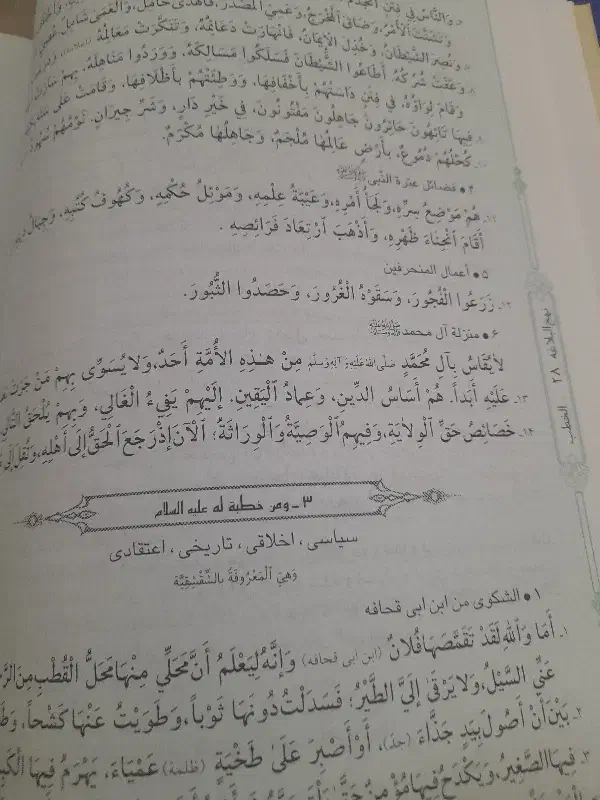 وَالنَّاسُ فِي فِتَنٍ
وَتَشَتَّتَ الْأَمْرُ، وَضَاقَ الْمَخْرَجُ، وَعَمِيَ الْمَصْدَرُ، فَالْهُدَى خَامِلٌ، وَالْعَمَى شَامِلٌ.
وَنُصِرَ الشَّيْطَانُ، وَخُذِلَ الْإِيمَانُ، فَانْهَارَتْ دَعَائِمُهُ، وَتَنَكَّرَتْ مَعَالِمُهُ
وَعَفَتْ شُرُكُهُ. أَطَاعُوا الشَّيْطَانَ فَسَلَكُوا مَسَالِكَهُ، وَوَرَدُوا مَنَاهِلَهُ، بِهِمْ سَارَتْ
وَقَامَ لِوَاؤُهُ، فِي فِتَنٍ دَاسَتْهُمْ بِأَخْفَافِهَا، وَوَطِئَتْهُمْ بِأَظْلَافِهَا، وَقَامَتْ عَلَى
فِيهَا تَائِهُونَ حَائِرُونَ جَاهِلُونَ مَفْتُونُونَ، فِي خَيْرِ دَارٍ، وَشَرِّ جِيرَانٍ. نَوْمُهُمْ سُهُودٌ
كُحْلُهُمْ دُمُوعٌ، بِأَرْضٍ عَالِمُهَا مُلْجَمٌ، وَجَاهِلُهَا مُكْرَمٌ.
۴ • فضائل عترة النّبي
هُمْ مَوْضِعُ سِرِّهِ، وَلَجَأُ أَمْرِهِ، وَعَيْبَةُ عِلْمِهِ، وَمَوْئِلُ حُكْمِهِ، وَكُهُوفُ كُتُبِهِ، وَجِبَالُ
أَقَامَ انْحِنَاءَ ظَهْرِهِ، وَأَذْهَبَ ارْتِعَادَ فَرَائِصِهِ.
۵ • أعمال المنحرفين
۱۲. زَرَعُوا الْفُجُورَ، وَسَقَوْهُ الْغُرُورَ، وَحَصَدُوا الثُّبُورَ.
۶ • منزلة آل محمد
لَا يُقَاسُ بِآلِ مُحَمَّدٍ صَلَّى اللهُ عَلَيْهِ وَآلِهِ وَسَلَّمَ مِنْ هٰذِهِ الْأُمَّةِ أَحَدٌ، وَلَا يُسَوَّى بِهِمْ مَنْ جَرَتْ
۱۳. عَلَيْهِ أَبَداً. هُمْ أَسَاسُ الدِّينِ، وَعِمَادُ الْيَقِينِ. إِلَيْهِمْ يَفِيءُ الْغَالِي، وَبِهِمْ يُلْحَقُ التَّالِي
۱۴. خَصَائِصُ حَقِّ الْوِلَايَةِ، وَفِيهِمُ الْوَصِيَّةُ وَالْوِرَاثَةُ؛ الْآنَ إِذْ رَجَعَ الْحَقُّ إِلَى أَهْلِهِ، وَنُقِلَ إِلَى
۳ - ومن خطبة له عليه السلام
سیاسی، اخلاقی، تاریخی، اعتقادی
وَهِيَ الْمَعْرُوفَةُ بِالشِّقْشِقِيَّة
۱ • الشكوى من ابن ابی قحافه
۱. أَمَا وَاللهِ لَقَدْ تَقَمَّصَهَا فُلَانٌ (ابن ابی قحافه) وَإِنَّهُ لَيَعْلَمُ أَنَّ مَحَلِّي مِنْهَا مَحَلُّ الْقُطْبِ مِنَ
عَنِّي السَّيْلُ، وَلَا يَرْقَى إِلَيَّ الطَّيْرُ؛ فَسَدَلْتُ دُونَهَا ثَوْباً، وَطَوَيْتُ عَنْهَا كَشْحاً،
۲. بَيْنَ أَنْ أَصُولَ بِيَدٍ جَذَّاءَ (جدّ)، أَوْ أَصْبِرَ عَلَى طَخْيَةٍ (ظلمة) عَمْيَاءَ، يَهْرَمُ فِيهَا
۳. فِيهَا الصَّغِيرُ، وَيَكْدَحُ فِيهَا مُؤْمِنٌ
نهج البلاغه
۲۸
الخطب